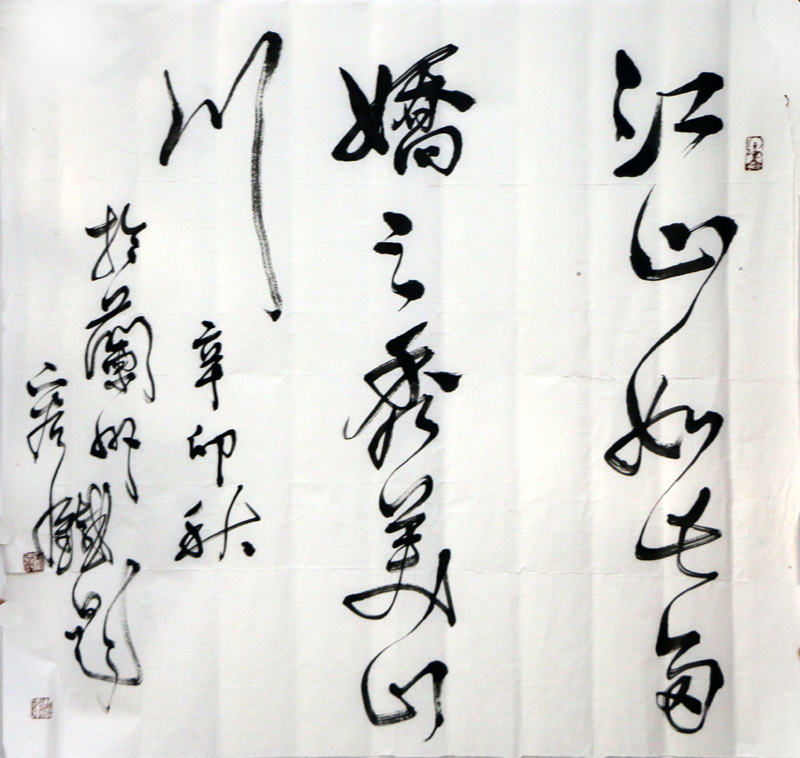 江山如此多
嬌之秀美山
川
辛卯秋
於蘭州
題